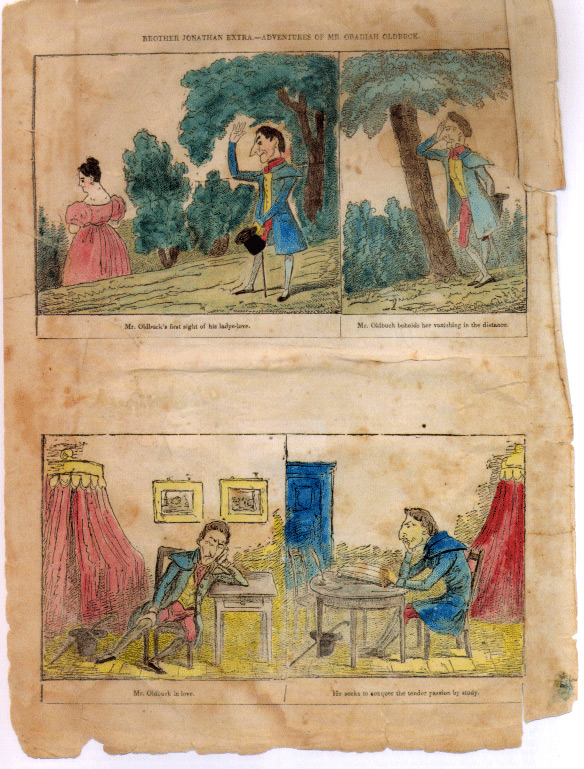 BROTHER JONATHAN EXTRA.—ADVENTURES OF MR. OBADIAH OLDBUCK.
Mr. Oldbuck's first sight of his ladye-love.
Mr. Oldbuck beholds her vanishing in the distance.
Mr. Oldbuck in love.
He seeks to conquer the tender passion by study.